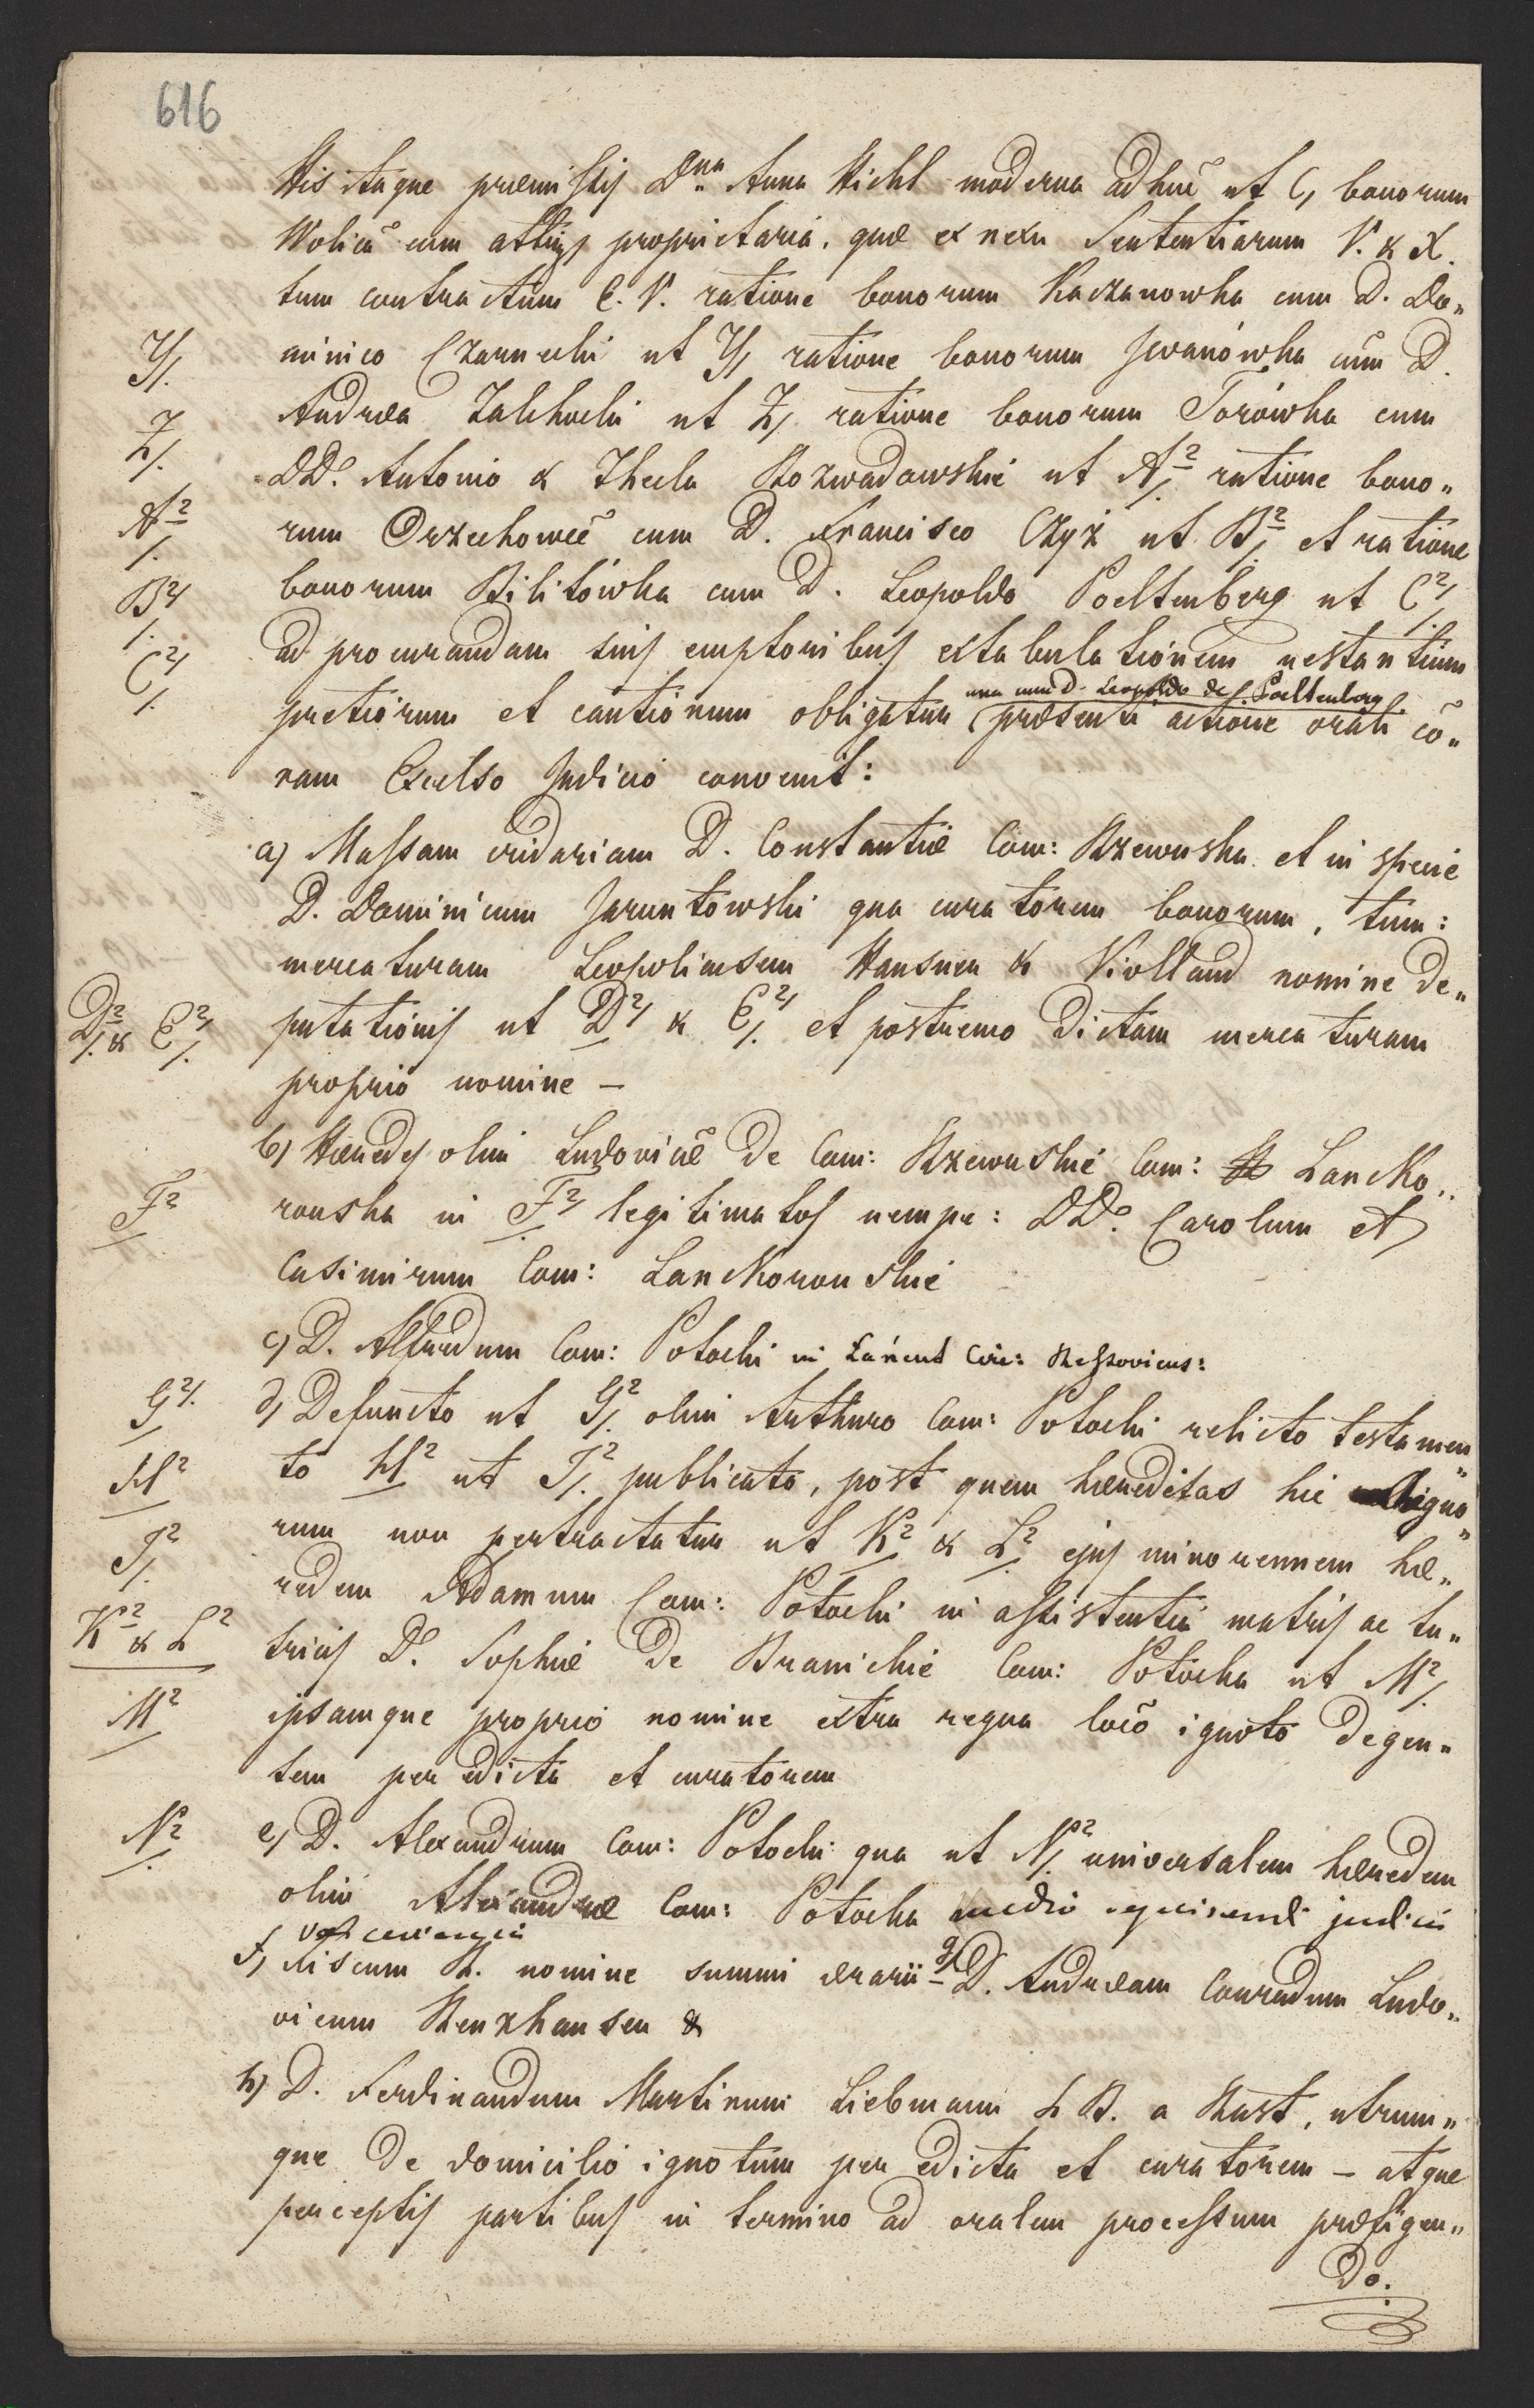 616
His itaque præmissis D<sup>na</sup> Anna Hichl moderna adhuc ut C/ bonorum
Wolica cum attin. proprietaria, quæ ex nexu Sententiarum V. & X.
tum contractûm E. V. ratione bonorum Kaczanowka cum D. Do„
Y/. minico Czarnecki ut Y/ ratione bonorum Jwanówka cum D.
Z/. Andrea Zalchocki ut Z/ ratione bonorum Torówka cum
DD. Antonio & Thecla Rozwadowskie ut A²/. ratione bono„
A²/. rum Orzechowce cum D. Francisco Czyż ut B²/. et ratione
B²/. bonorum Bilitówka cum D. Leopoldo Poeltenberg ut C²/.
C²/. ad procurandam suis emptoribus extabulationem restantium
una cum D. Leopoldo de Poeltenberg
pretiorum et cautionum obligatur præsenti actione orali co„
ram Excelso Judicio convenit:
a) Massam cridariam D. Constantiæ Com: Rzewuska et in specie
D. Dominicum Jaruntowski qua curatorem bonorum, tum:
mercaturam Leopoliensem Hausner & Violland nomine de„
D²/. & E²/. putationis ut D²/ & E²/. et postremo dictam mercaturam
proprio nomine –
b) Hæredes olim Ludovicæ de Com: Rzewuskie Com: Lancko„
F² ronska in F²/ legitimatos nempe: DD. Carolum et
Casimirum Com: Lanckoronskie
c) D. Alfredum Com: Potocki in Łańcut Circ: Reszoviens:
G²/. d) Defuncto ut G²/. olim Arthuro Com: Potocki relicto testamen„
H² to H² ut J²/. publicato, post quem hæreditas hic regno„
J²/. rum non pertractatur ut K² & L² ejus minorennem hæ„
redem Adamum Com: Potocki in assistentia matris ac tu„
K² & L² tricis D. Sophiæ de Branickie Com: Potocka ut M²/.
M² ipsamque proprio nomine extra regna loco ignoto degen„
tem per edicta et curatorem
N²/. e) D. Alexandrum Com: Potocki qua ut N²/. universalem hæredem
olim Alexandræ Com: Potocka medio requirendi judicii
f) Fiscum R. nomine summi ærarii g) D. Andream Conradum Ludo„
vicum Renxhausen &
h) D. Ferdinandum Martinum Liebmann L. B. a Rast, utrum„
que de domicilio ignotum per edicta et curatorem – atque
perceptis partibus in termino ad oralem processum præfigen„
do.